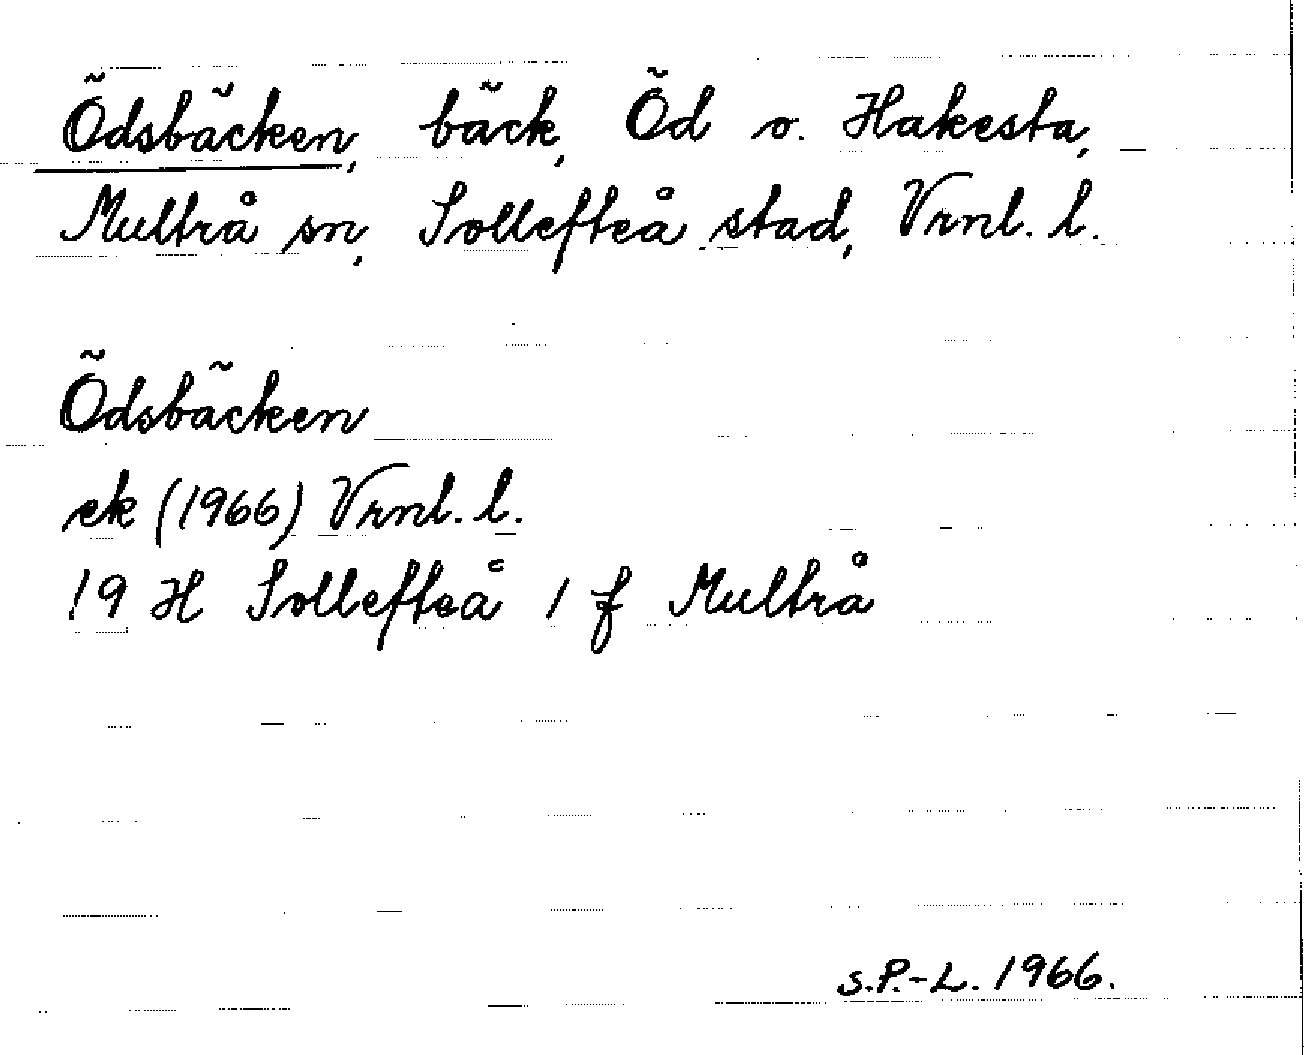 Ödsbäcken, bäck, Öd o. Hakesta,
Multrå sn, Sollefteå stad, Vrnl. l.
Ödsbäcken
ek (1966) Vrnl. l.
19 H Sollefteå 1 f Multrå
S.P.-L. 1966.